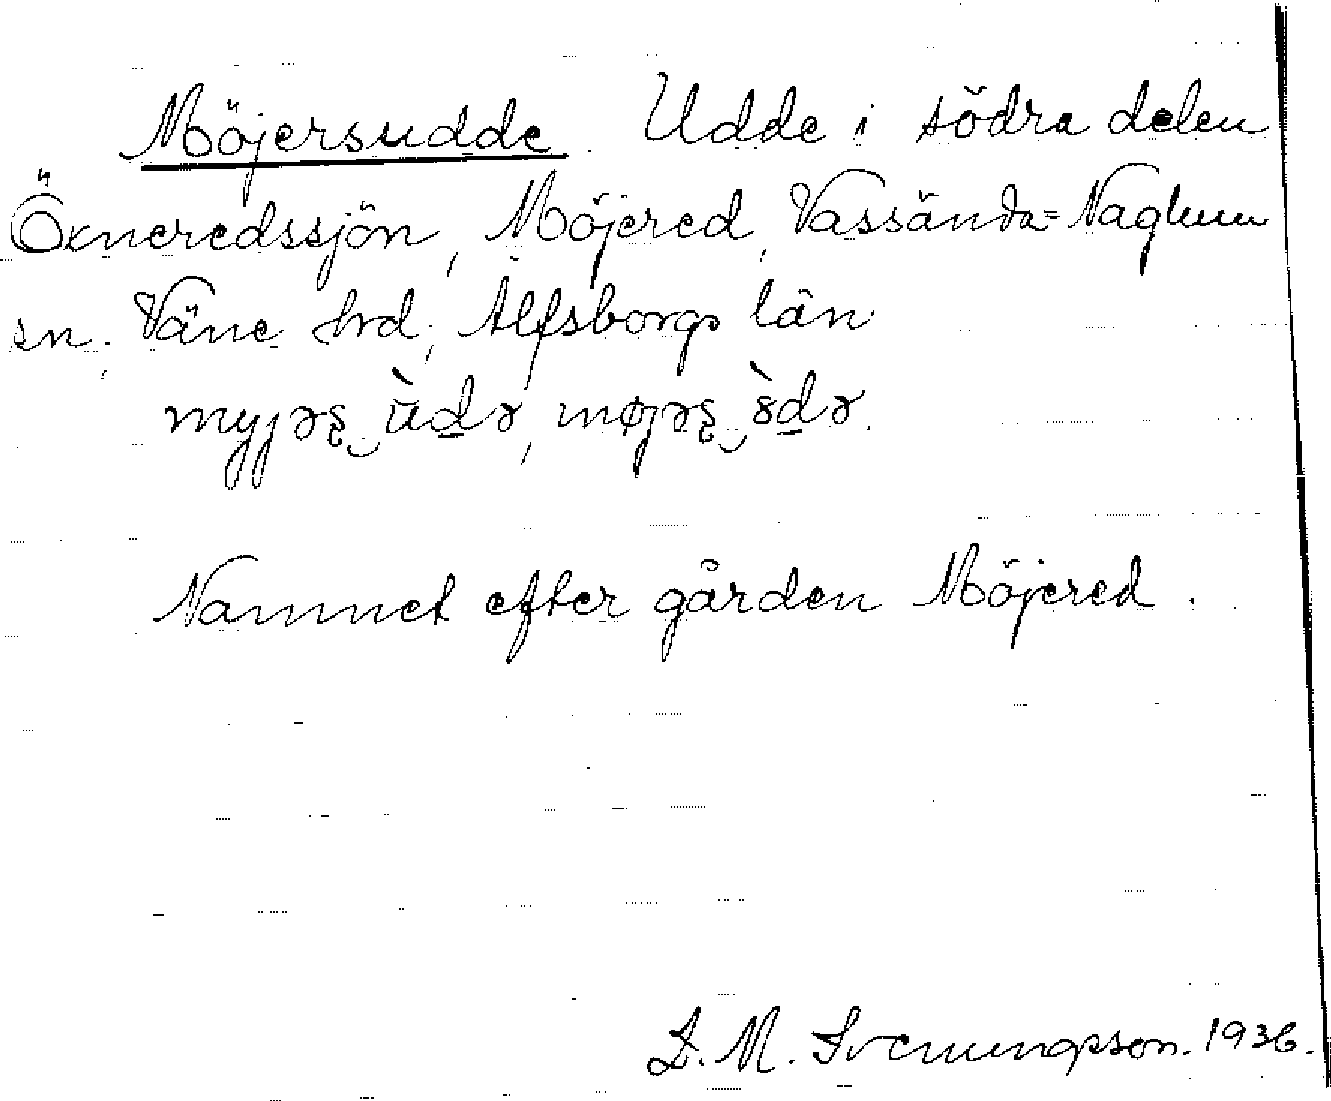 Möjersudde. Udde i södra delen
Öxneredssjön, Möjered, Vassända=Naglum
sn. Väne hrd, Älfsborgs län
myjəʂ‿ùd̲ə, møjəʂ‿ \`8d̲ə.
Namnet efter gården Möjered.
D. M. Svenungsson. 1936.